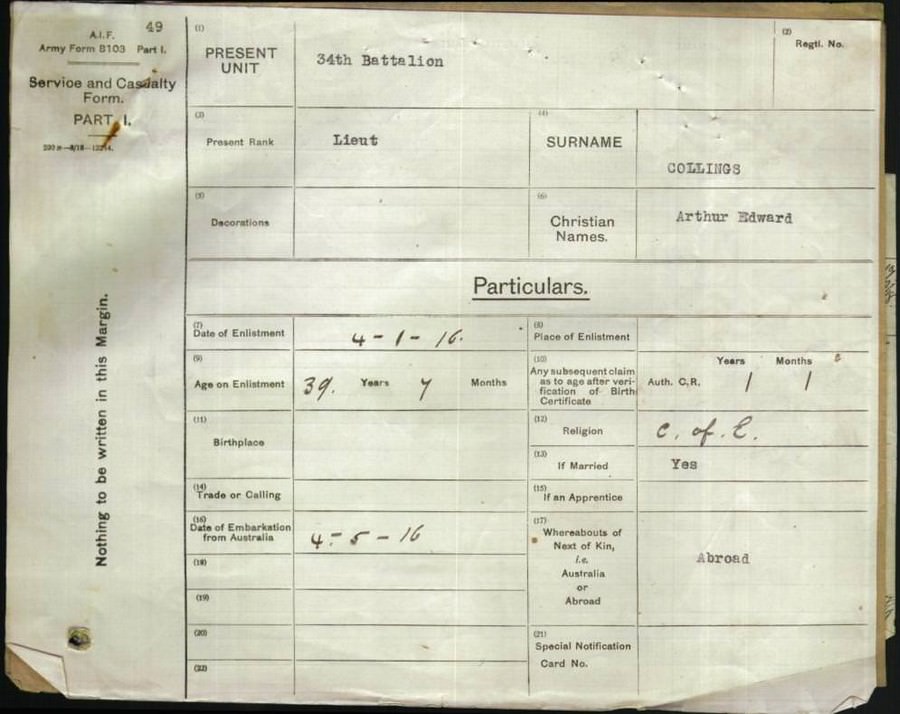 49
A.I.F.
Army Form B103 Part I.
Service and Casualty
Form.
PART I.
Nothing to be written in this Margin.
(1)
PRESENT
UNIT
34th Battalion
(2)
Regtl. No.
(3)
Present Rank
Lieut
(4)
SURNAME
COLLINGS
(5)
Decorations
(6)
Christian
Names.
Arthur Edward
Particulars.
(7)
Date of Enlistment
4-1-16.
(8)
Place of Enlistment
(9)
Age on Enlistment
39. Years 7 Months
(10)
Any subsequent claim
as to age after veri-
fication of Birth
Certificate
Years Months
Auth. C.R.
(11)
Birthplace
(12)
Religion
C. of. E.
(13)
If Married
Yes
(14)
Trade or Calling
(15)
If an Apprentice
(16)
Date of Embarkation
from Australia
4-5-16
(17)
Whereabouts of
Next of Kin,
i.e.
Australia
or
Abroad
Abroad
(18)
(19)
(20)
(21)
Special Notification
Card No.
(22)